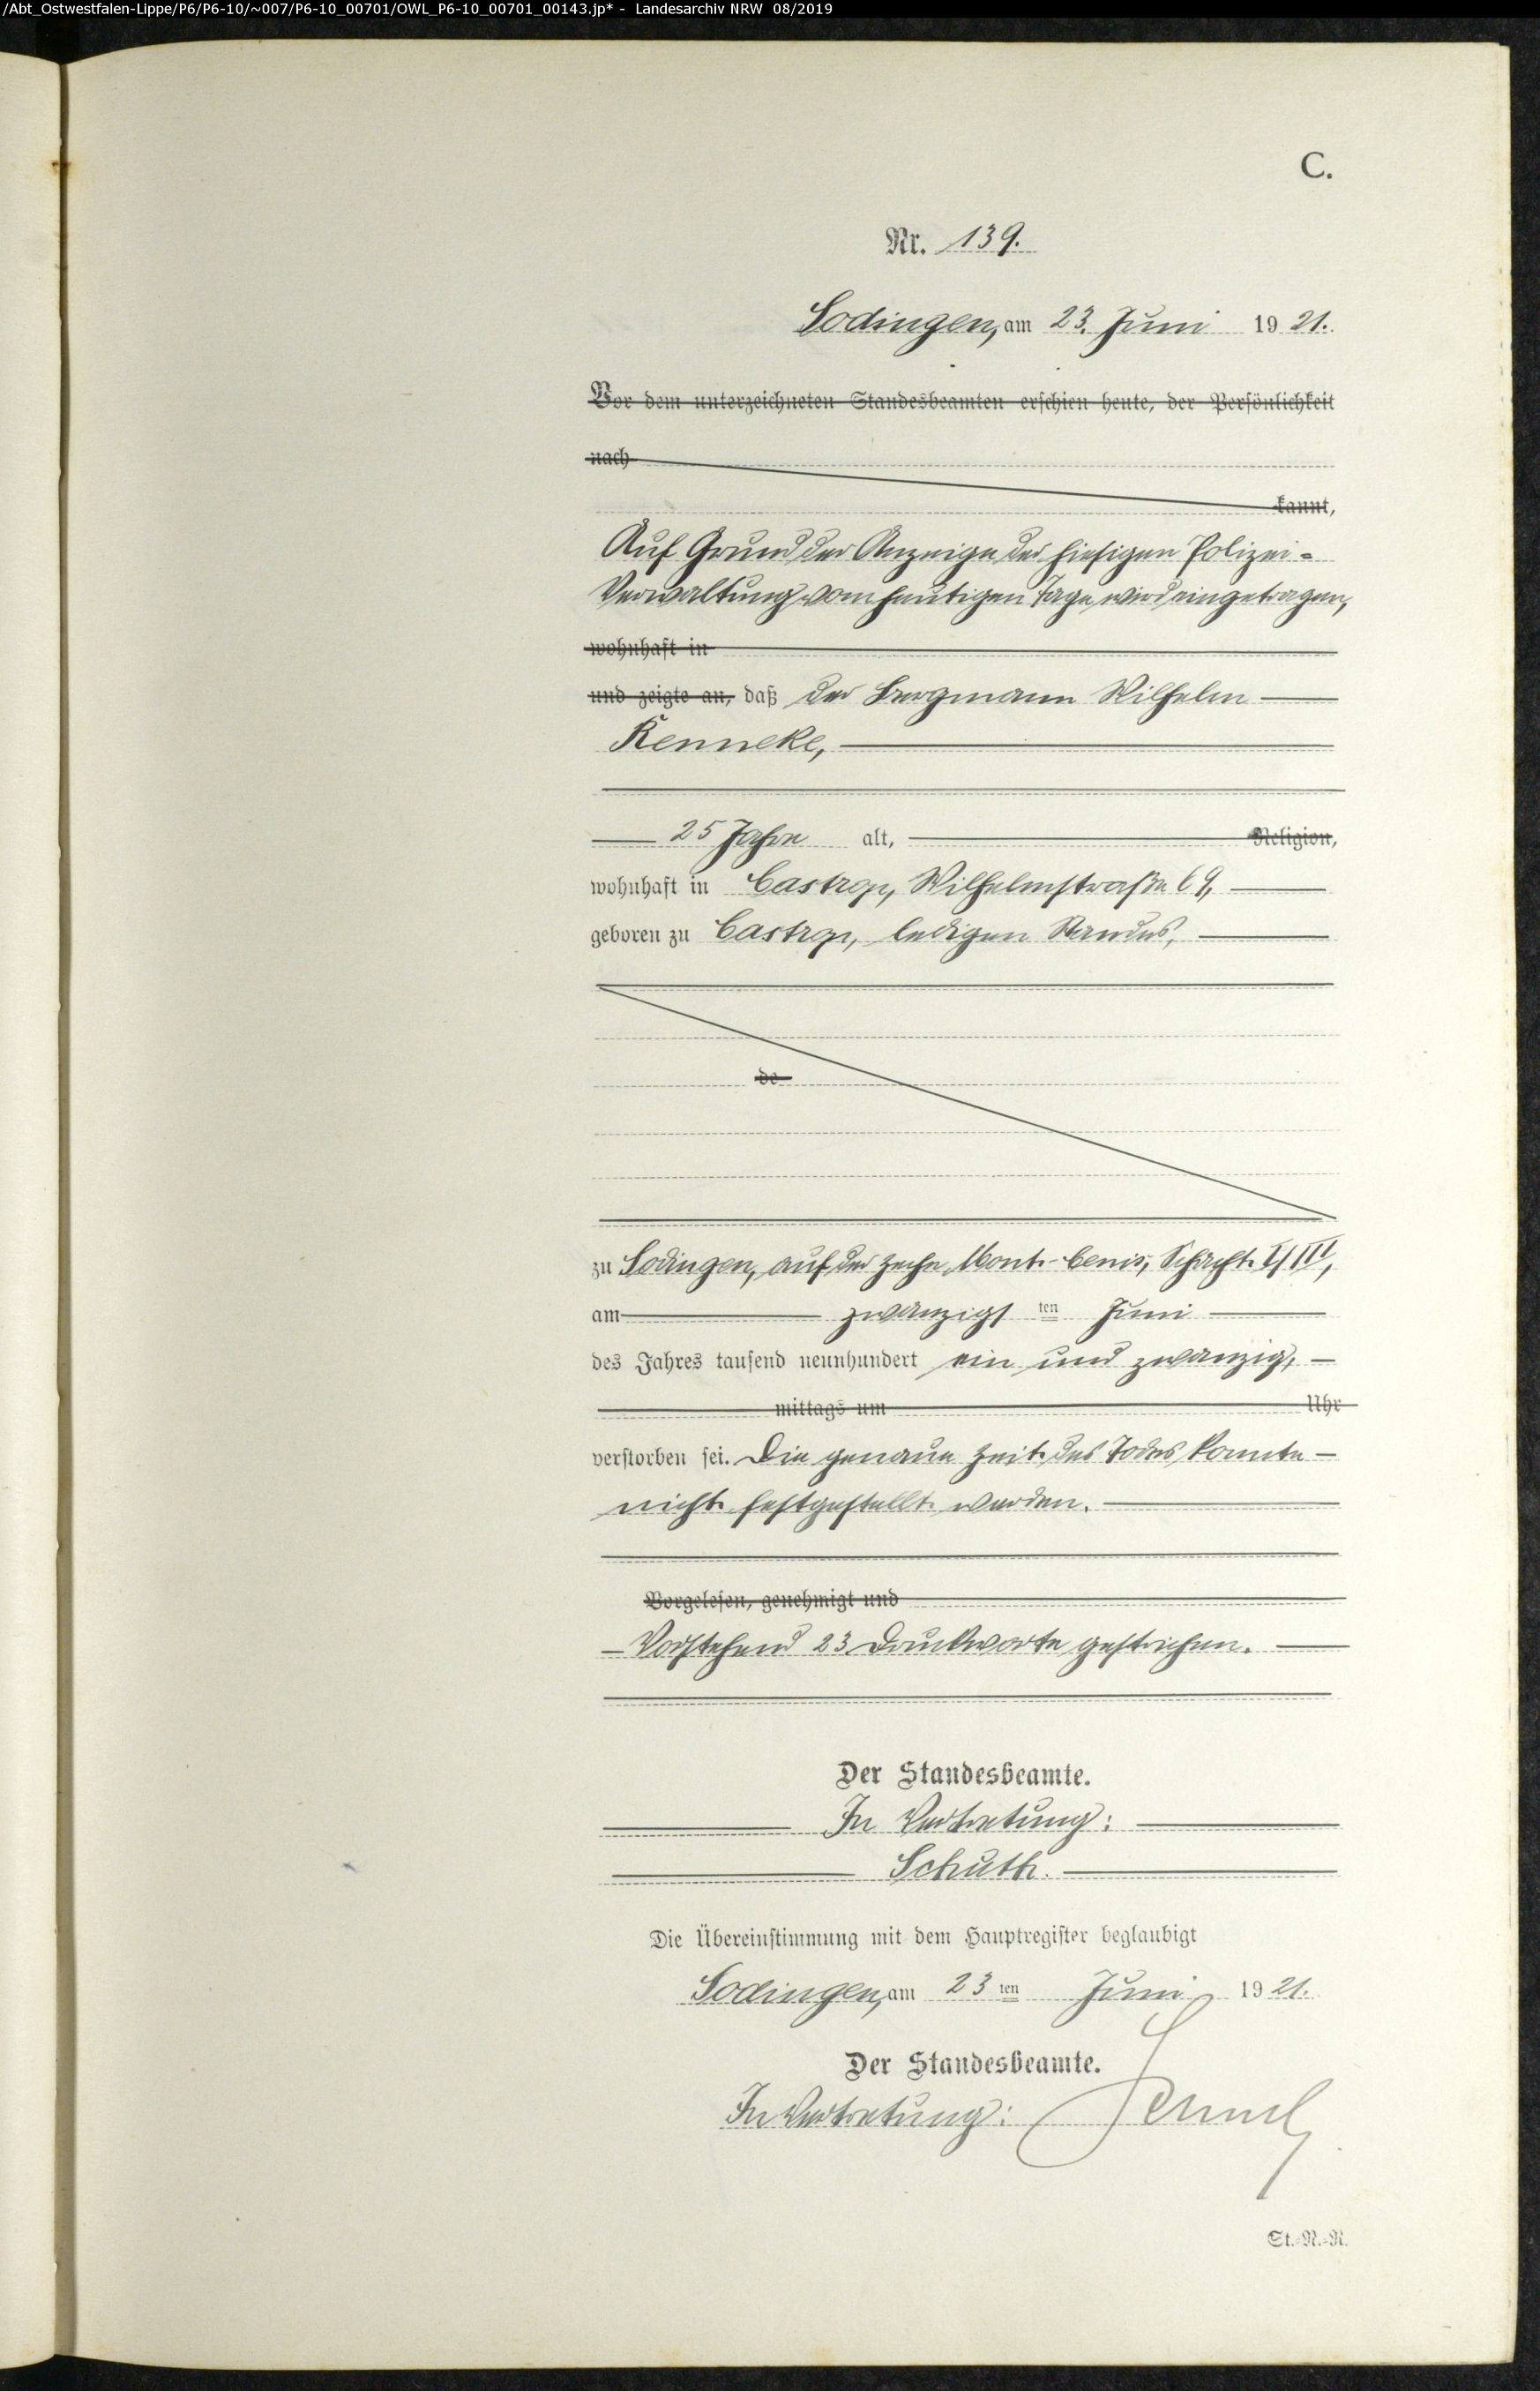 /Abt_Ostwestfalen-Lippe/P6/P6-10/~007/P6-10_00701/OWL_P6-10_00701_00143.jp* - Landesarchiv NRW 08/2019
C.
Nr. 139.
Sodingen, am 23. Juni 1921.
Vor dem unterzeichneten Standesbeamten erschien heute, der Persönlichkeit
nach
kannt,
Auf Grund der Anzeige der hiesigen Polizei-
Verwaltung vom heutigen Tage wird eingetragen,
wohnhaft in
und zeigte an, daß der Bergmann Wilhelm
Kenneke,
25 Jahre alt, Religion,
wohnhaft in Castrop, Wilhelmstraße 69,
geboren zu Castrop, ledigen Standes,
de
zu Sodingen, auf der Zeche Mont-Cenis, Schacht I/III,
am zwanzigsten Juni
des Jahres tausend neunhundert ein und zwanzig,
mittags um Uhr
verstorben sei. Die genaue Zeit des Todes konnte
nicht festgestellt werden.
Vorgelesen, genehmigt und
Vorstehend 23 Druckworte gestrichen.
Der Standesbeamte.
In Vertretung:
Schuth.
Die Übereinstimmung mit dem Hauptregister beglaubigt
Sodingen, am 23ten Juni 1921.
Der Standesbeamte.
In Vertretung:
St.-N.-R.